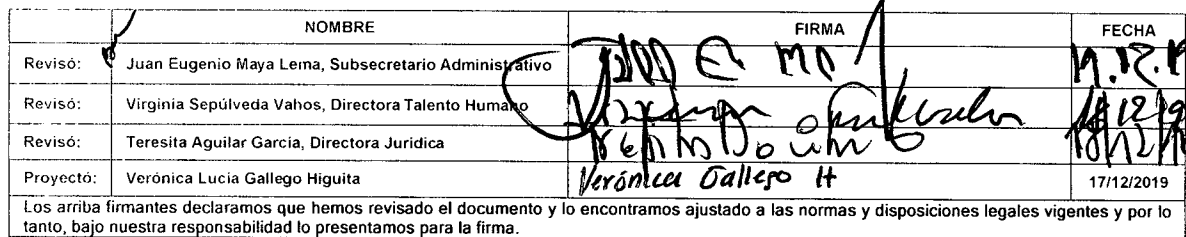 NOMBRE FIRMA FECHA
Revisó: Juan Eugenio Maya Lema, Subsecretario Administrativo
Revisó: Virginia Sepúlveda Vahos, Directora Talento Humano
Revisó: Teresita Aguilar García, Directora Jurídica
Proyectó: Verónica Lucia Gallego Higuita Verónica Gallego H 17/12/2019
Los arriba firmantes declaramos que hemos revisado el documento y lo encontramos ajustado a las normas y disposiciones legales vigentes y por lo
tanto, bajo nuestra responsabilidad lo presentamos para la firma.